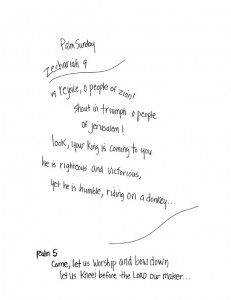 Palm Sunday
Zechariah 9
9 rejoice, O people of zion!
shout in triumph O people
of jerusalem!
look, your King is coming to you
he is righteous and victorious,
yet he is humble, riding on a donkey...
psalm 5
Come, let us worship and bow down
let us Kneel before the LORD our maker...